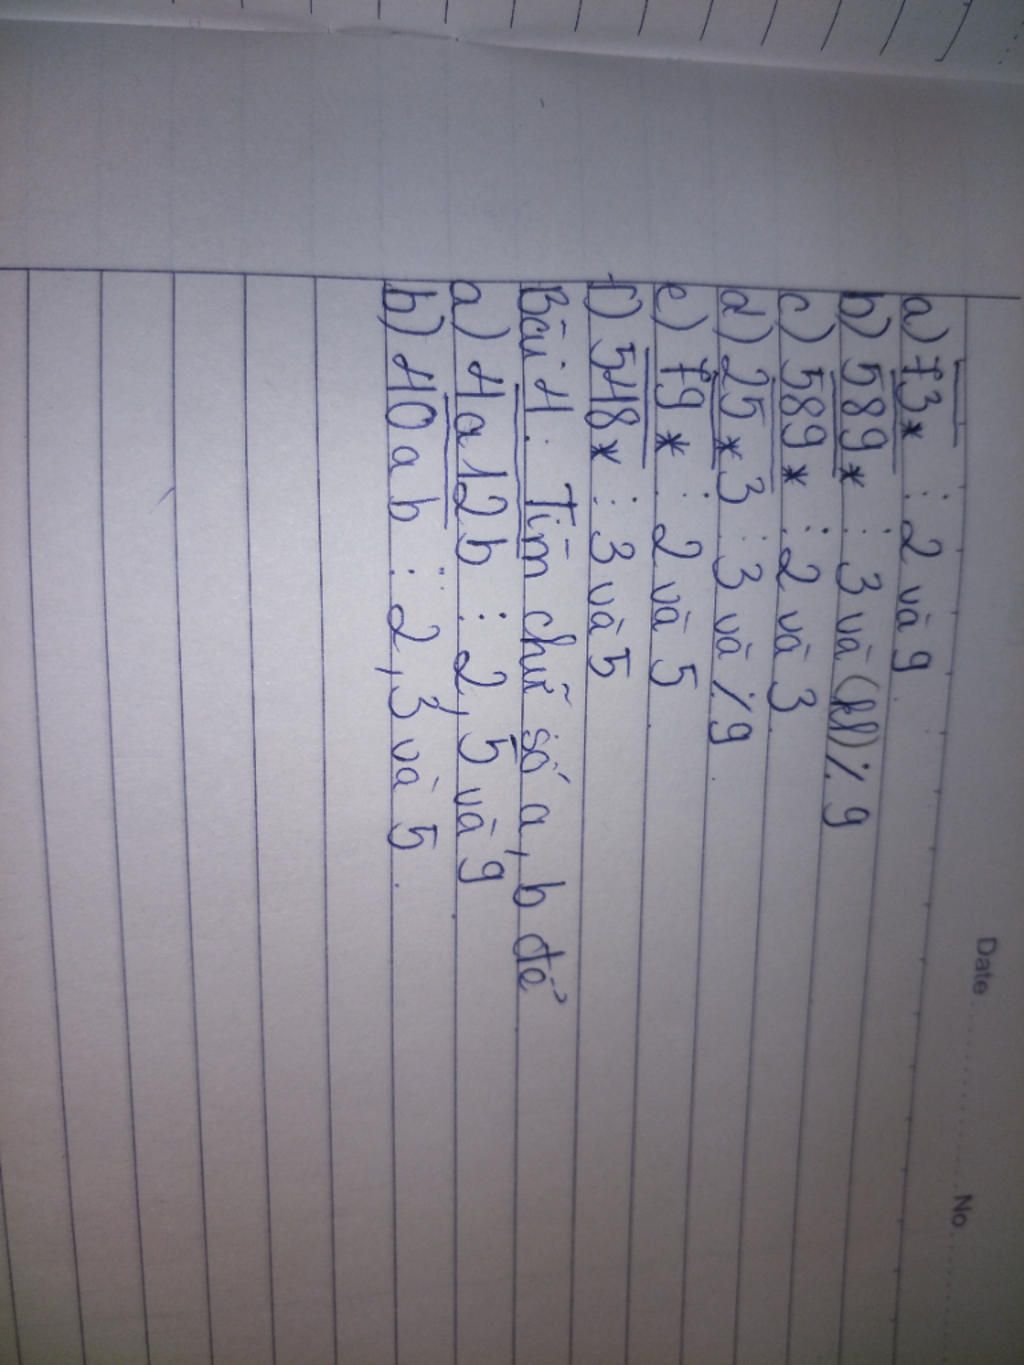 Date No.
a) 73* ⋮ 2 và 9
b) 589* ⋮ 3 và ⋮̸ 9
c) 589* ⋮ 2 và 3
d) 25*3 ⋮ 3 và ⋮̸ 9
e) 79* ⋮ 2 và 5
f) 548* ⋮ 3 và 5
Bài 4: Tìm chữ số a, b để
a) 4a12b ⋮ 2, 5 và 9
b) 40ab ⋮ 2, 3 và 5.